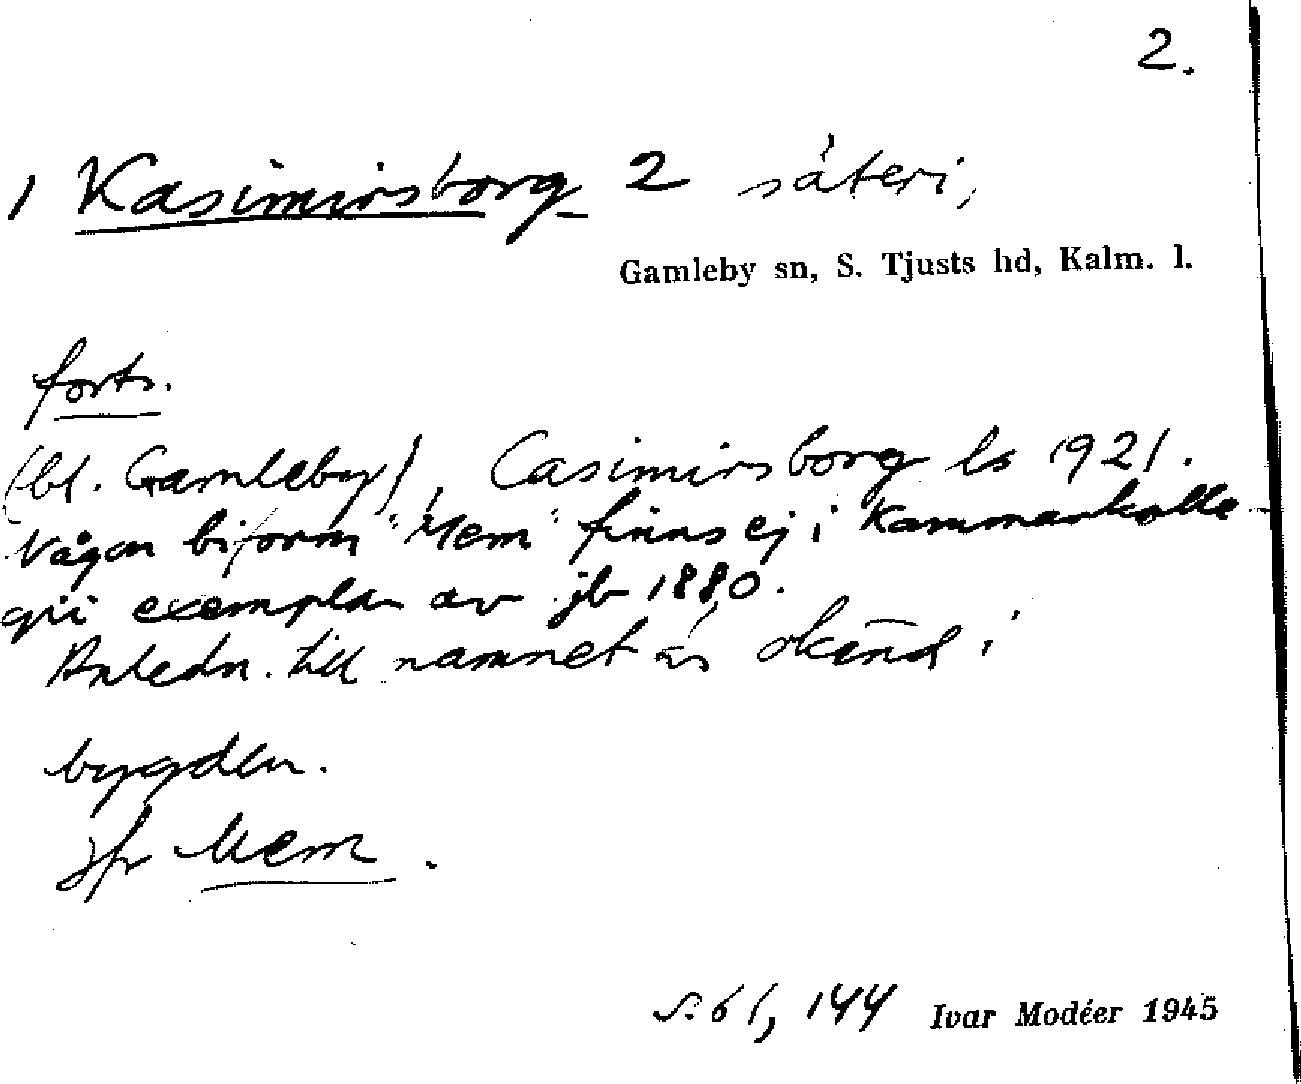 2.
1 Kasimirsborg 2 säteri,
Gamleby sn, S. Tjusts hd, Kalm. l.
forts.
(bl. Gamleby), Casimirsborg ls 1921.
Någon biform "Mem" finns ej i Kammarkolle-
gii exemplar av jb 1880.
Anledn. till namnet är okänd i
bygden.
Jfr Mem.
s. 61, 144 Ivar Modéer 1945